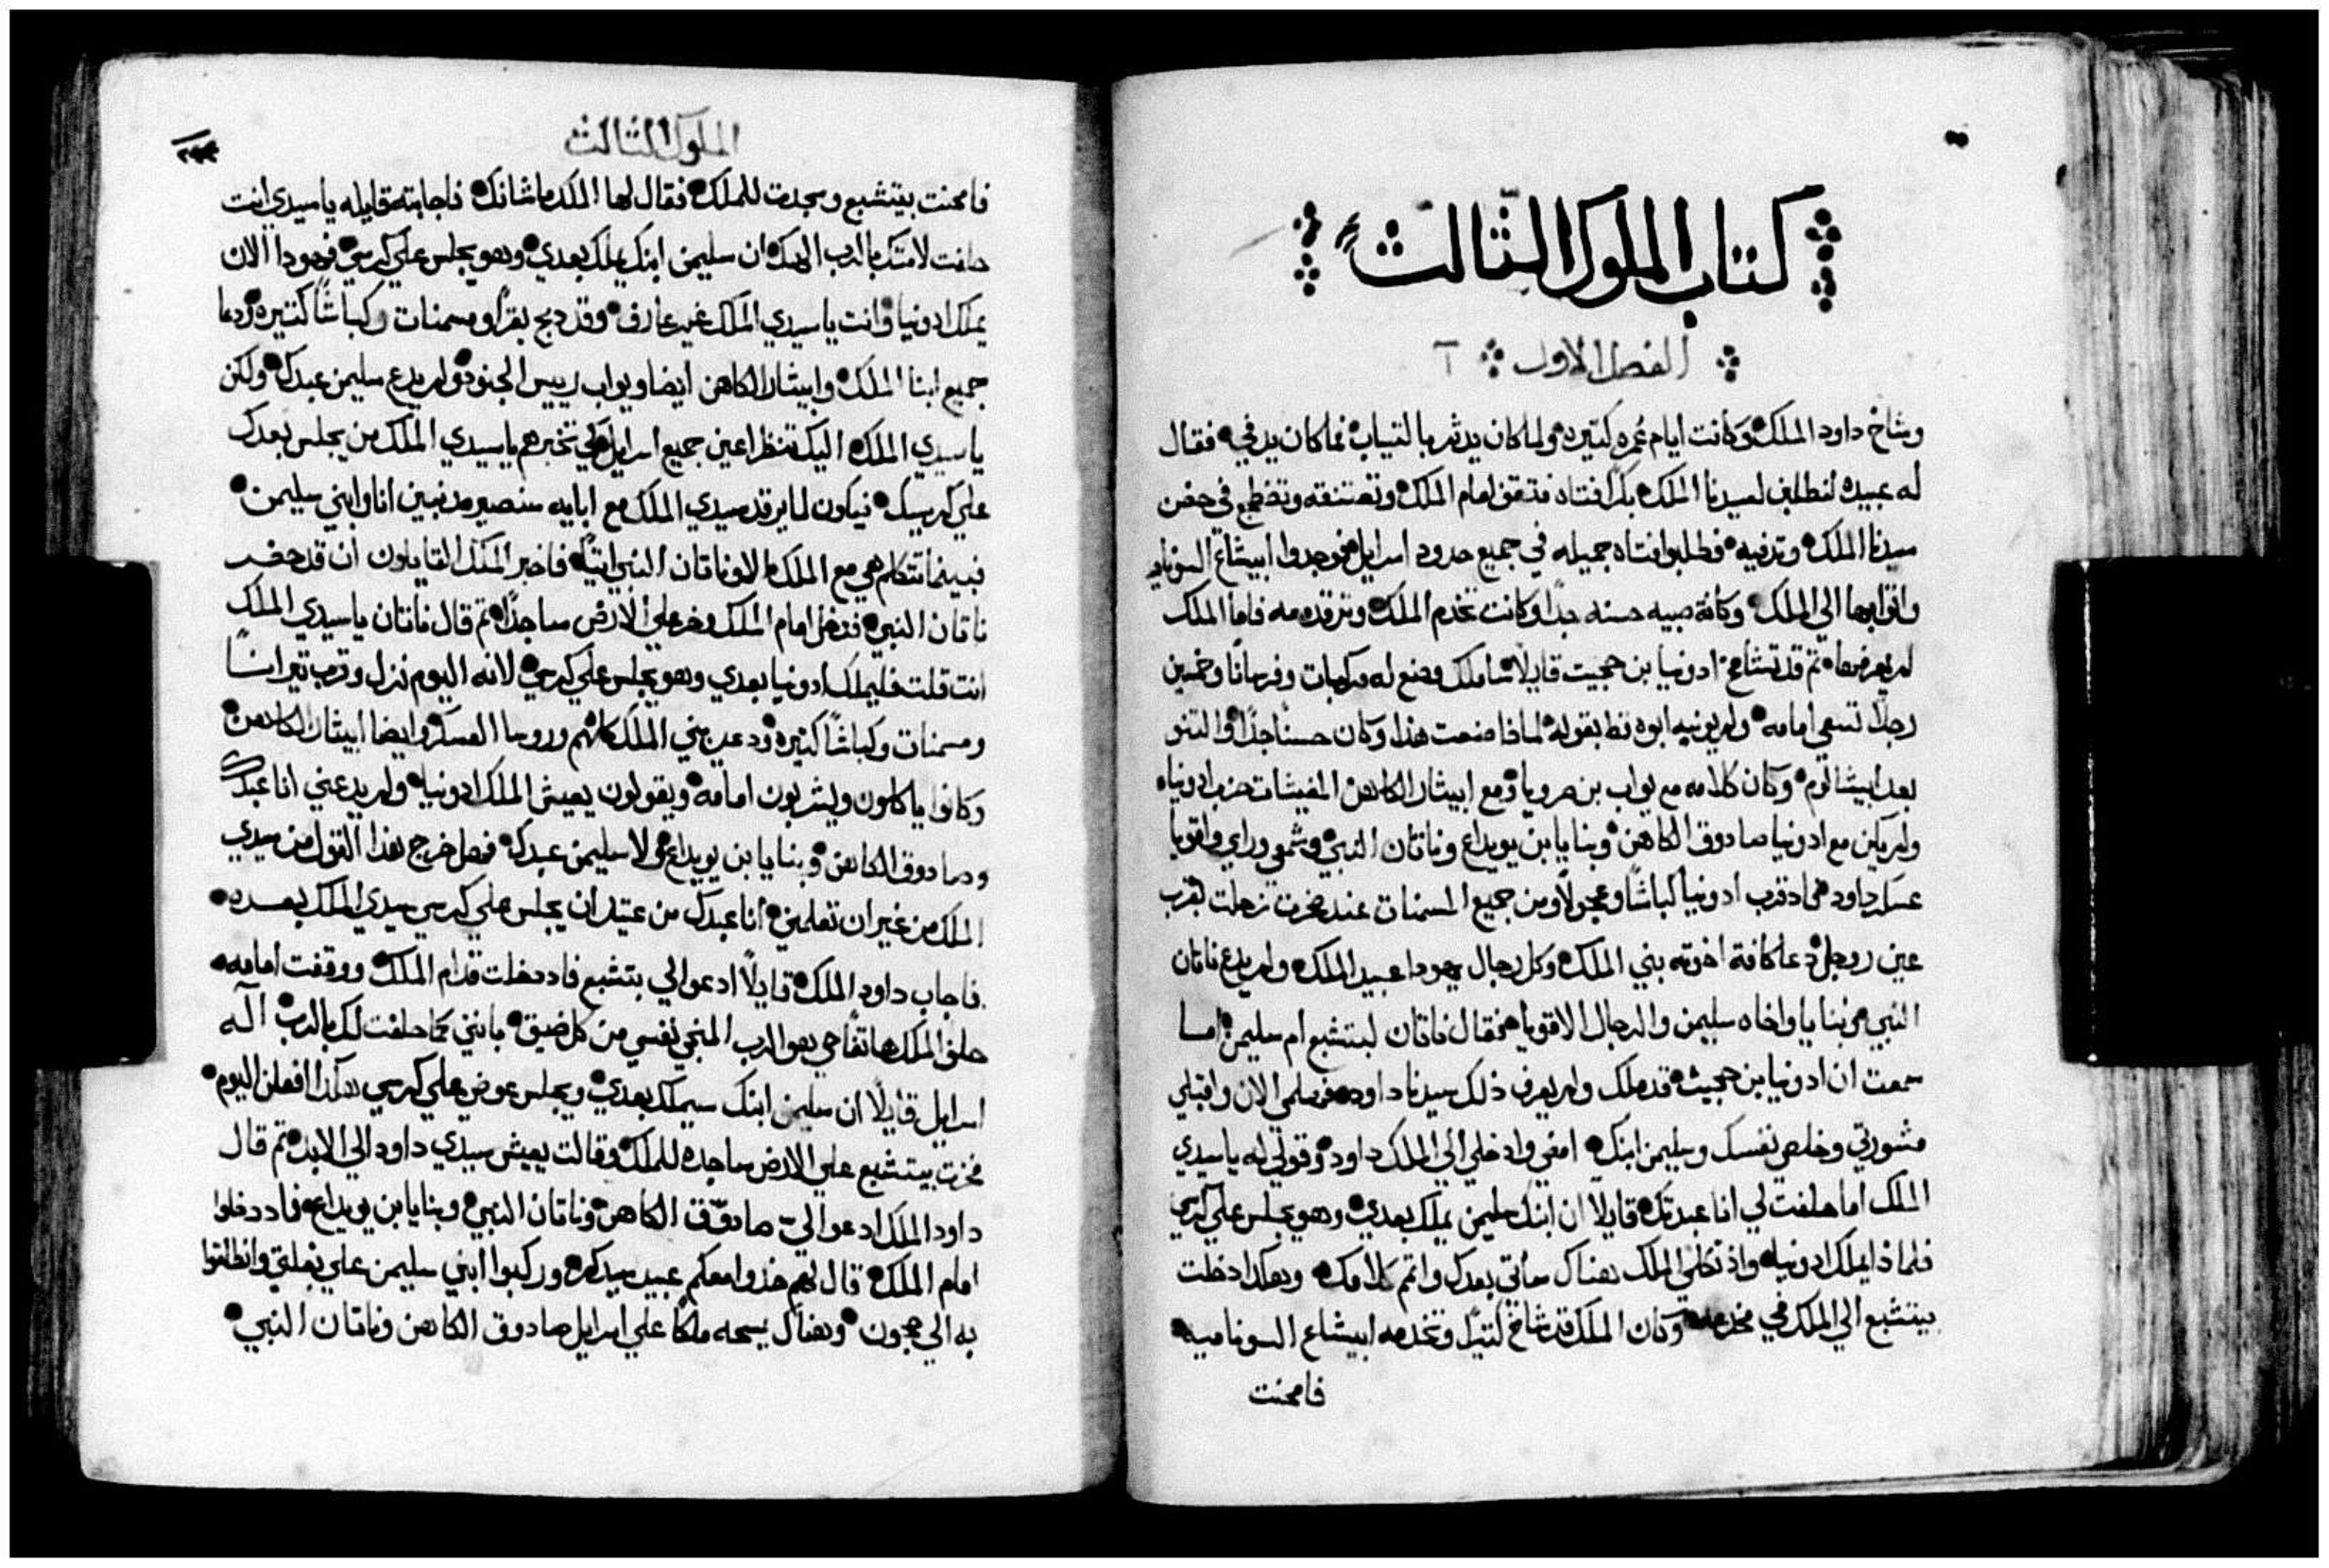 كتاب الملوك الثالث
الفصل الاول
وشاخ داود الملك وكانت ايام عمره كتيره ولما كان يدثر بالتياب فما كان يدفي فقال
له عبيده لنطلب لسيدنا الملك بكرا فتاه فتقف امام الملك وتعتنقه وتضطجع في حضن
سيدنا الملك وتدفيه فطلبوا فتاه جميله في جميع حدود اسرايل فوجدوا ابيشاع السوناميه
واتوا بها الي الملك وكانة صبيه حسنه جدا وكانت تخدم الملك وترقد معه فاما الملك
لم يعرفها ثم قد تشامخ ادونيا بن حجيت قايلا ساملك وصنع له مركبات وفرسانا وخمسين
رجلا تسعي امامه ولم يونبه ابوه قط بقوله لماذا صنعت هذا وكان حسنا جدا والتنو
بعد ابيشالوم وكان كلامه مع يواب بن صرويا ومع ابيثار الكاهن حزب ادونياه
ولم يكن مع ادونيا صادوق الكاهن وبنايا بن يويداع وناتان النبي وشمعي وراي واقويا
عسكر داود فاد قرب ادونيا كباشا وعجولا ومن جميع المسمنات عند صخرت زحلت بقرب
عين روجل دعا كافة اخوته بني الملك وكل رجال يهودا عبيد الملك ولم يدع ناتان
النبي وبنايا واخاه سليمن والرجال الاقويا فقال ناتان لبتشبع ام سليمن اما
سمعت ان ادونيا بن حجيث قد ملك ولم يعرف ذلك سيدنا داود فهلمي الان واقبلي
مشورتي وخلصي نفسك وسليمن ابنك امضي وادخلي الي الملك داود وقولي له ياسيدي
الملك اما حلفت لي انا عبدتك قايلا ان ابنك سليمن يملك بعدي وهو يجلس علي كرسي
فلماذا يملك ادونيا واذ تكلمي الملك هناك ساتي بعدك واتم كلامك وهكدا دخلت
بيتشبع الي الملك في مخدعه وكان الملك قد شاخ كتيرا وتخدمه ابيشاع السوناميه
فامحنت
الملوك الثالث
فامحنت بيتشبع وسجدت للملك فقال لها الملك ما شانك فاجابته قايله ياسيدي انت
حلفت لامتك بالرب الهك ان سليمن ابنك يملك بعدي وهو يجلس علي كرسي فهودا الان
يملك ادونيا وانت ياسيدي الملك غير عارف وقد دبح بقرا ومسمنات وكباشا كتيره ودعا
جميع ابنا الملك وابيثار الكاهن ايضا ويواب رييس الجنود ولم يدع سليمن عبدك ولكن
ياسيدي الملك اليك تنظر اعين جميع اسرايل لكي تخبرهم ياسيدي الملك من يجلس بعدك
علي كرسيك فيكون لما يرقد سيدي الملك مع ابايه سنصير مدنبين انا وابني سليمن
فبينما تتكلم هي مع الملك الا وناتان النبي اتيا فاخبر الملك القايلون ان قد حضر
ناتان النبي فدخل امام الملك وخر علي الارض ساجدا تم قال ناتان ياسيدي الملك
انت قلت فليملك ادونيا بعدي وهو يجلس علي كرسي لانه اليوم نزل وقرب تيرانا
ومسمنات وكباشا كتيره ودعا بني الملك كلهم وروسا العسكر وايضا ابيثار الكاهن
وكانوا ياكلون ويشربون امامه ويقولون يعيش الملك ادونيا ولم يدعني انا عبدك
وصادوق الكاهن وبنايا بن يويداع ولا سليمن عبدك فهل خرج هذا القول من سيدي
الملك من غير ان تعلمني انا عبدك من عتيد ان يجلس علي كرسي سيدي الملك بعده
فاجاب داود الملك قايلا ادعوا لي بتشبع فاد دخلت قدام الملك ووقفت امامه
حلف الملك هاتفا حي هو الرب المنجي نفسي من كل ضيق بانني كما حلفت لك بالرب اله
اسرايل قايلا ان سليمن ابنك سيملك بعدي ويجلس عوضي علي كرسي هكدا افعل اليوم
فخرت بيتشبع علي الارض ساجده للملك وقالت يعيش سيدي داود الي الابد تم قال
داود الملك ادعوا الي صادوق الكاهن وناتان النبي وبنايا بن يويداع فاد دخلوا
امام الملك قال لهم خدوا معكم عبيد سيدكم وركبوا ابني سليمن علي بغلتي وانطلقوا
به الي جيحون وهناك يمسحه ملكا علي اسرايل صادوق الكاهن وناتان النبي